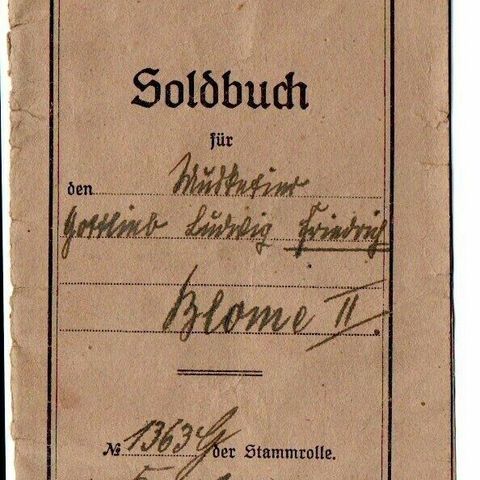 Soldbuch
für
den Musketier
Gottlieb Ludwig Friedrich
Blome II.
№ 1363 G der Stammrolle.